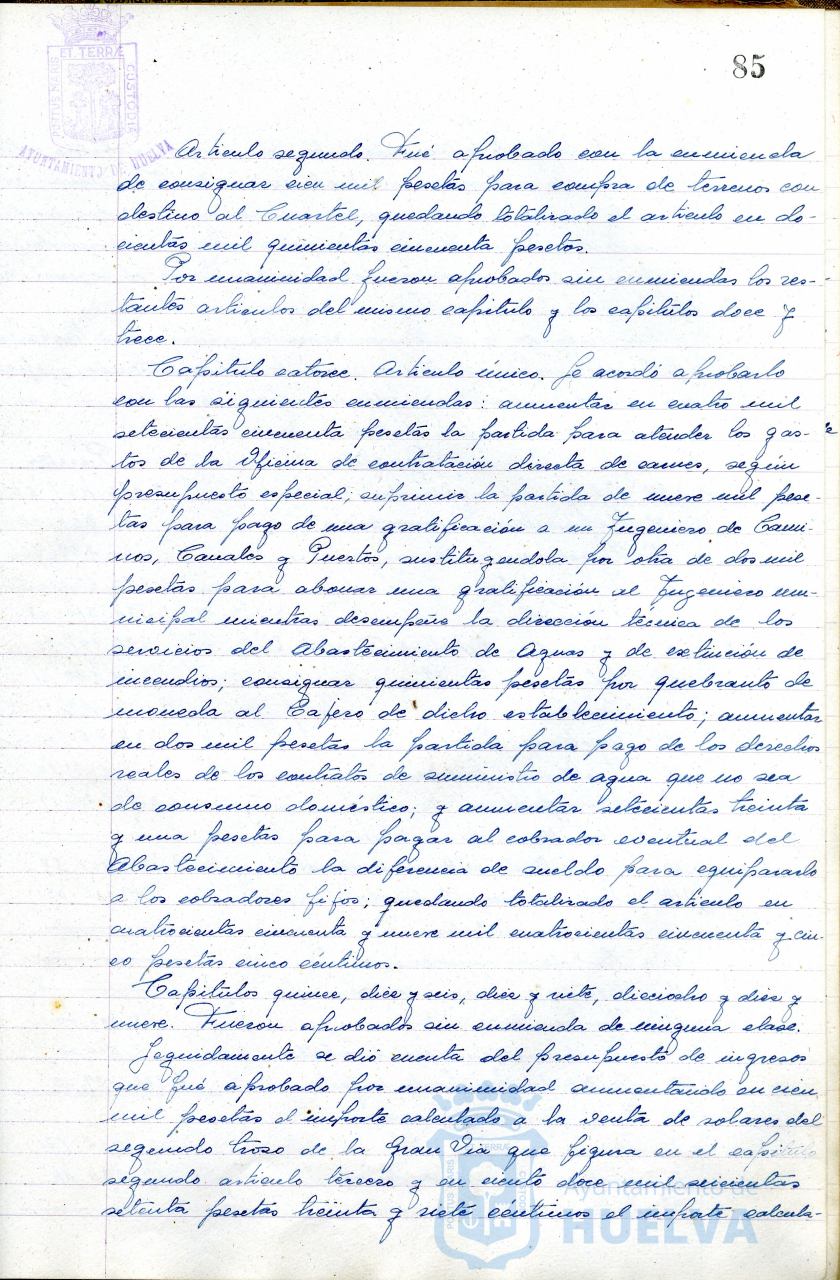 85
PORTUS MARIS
ET TERRÆ
CUSTODIA
AYUNTAMIENTO DE HUELVA
Artículo segundo. Fué aprobado con la enmienda
de consignar cien mil pesetas para compra de terrenos con
destino al Cuartel, quedando totalizado el artículo en do-
cientas mil quinientas cincuenta pesetas.
Por unanimidad fueron aprobados sin enmiendas los res-
tantes artículos del mismo capítulo y los capítulos doce y
trece.
Capítulo catorce. Artículo único. Se acordó aprobarlo
con las siguientes enmiendas: aumentar en cuatro mil
setecientas cincuenta pesetas la partida para atender los gas-
tos de la Oficina de contratación directa de carnes, según
presupuesto especial; suprimir la partida de nueve mil pese-
tas para pago de una gratificación a un Ingeniero de Cami-
nos, Canales y Puertos, sustituyendola por otra de dos mil
pesetas para abonar una gratificación al Ingeniero mu-
nicipal mientras desempeñe la dirección técnica de los
servicios del Abastecimiento de Aguas y de extinción de
incendios; consignar quinientas pesetas por quebranto de
moneda al Cajero de dicho establecimiento; aumentar
en dos mil pesetas la partida para pago de los derechos
reales de los contratos de suministro de agua que no sea
de consumo doméstico; y aumentar setecientas treinta
y una pesetas para pagar al cobrador eventual del
Abastecimiento la diferencia de sueldo para equipararlo
a los cobradores fijos; quedando totalizado el artículo en
cuatrocientas cincuenta y nueve mil cuatrocientas cincuenta y cin-
co pesetas cinco céntimos.
Capítulos quince, diez y seis, diez y siete, dieciocho y diez y
nueve. Fueron aprobados sin enmienda de ninguna clase.
Seguidamente se dió cuenta del presupuesto de ingresos
que fué aprobado por unanimidad aumentando en cien
mil pesetas el importe calculado a la venta de solares del
segundo troso de la Gran Via que figura en el capítulo
segundo artículo tercero y en ciento doce mil seicientas
setenta pesetas treinta y siete céntimos el importe calcula-
PORTUS MARIS
ET TERRÆ
CUSTODIA
Ayuntamiento de
HUELVA